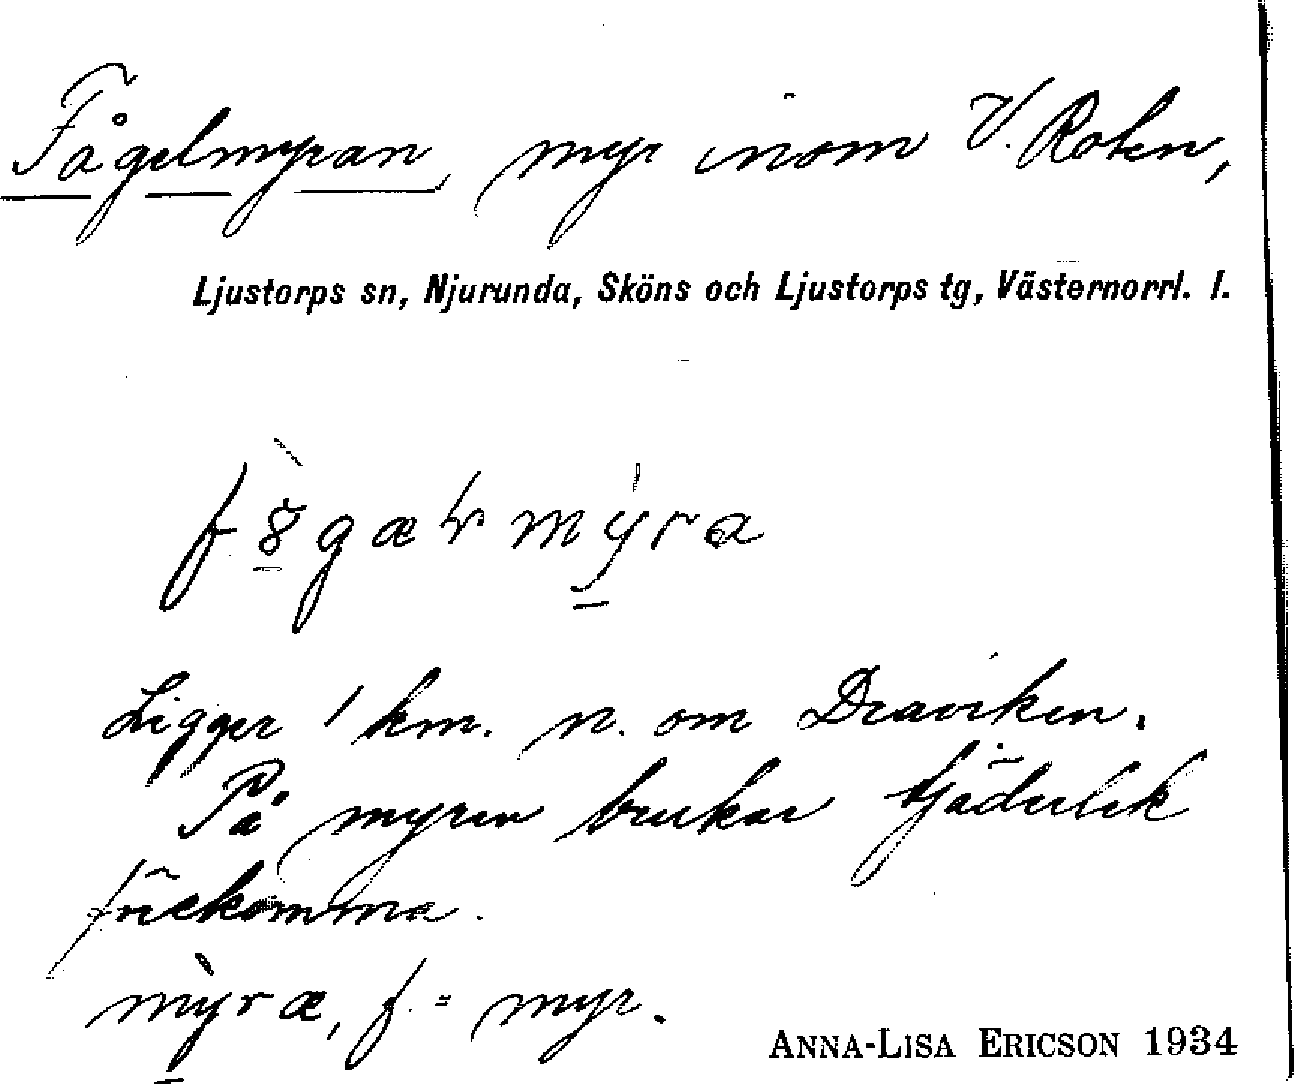 Fågelmyran, myr inom V. Roten,
Ljustorps sn, Njurunda, Sköns och Ljustorps tg, Västernorrl. l.
Ligger 1 km. n. om Draviken.
På myren brukar tjäderlek
förekomma.
mỳræ, f. = myr.
ANNA-LISA ERICSON 1934